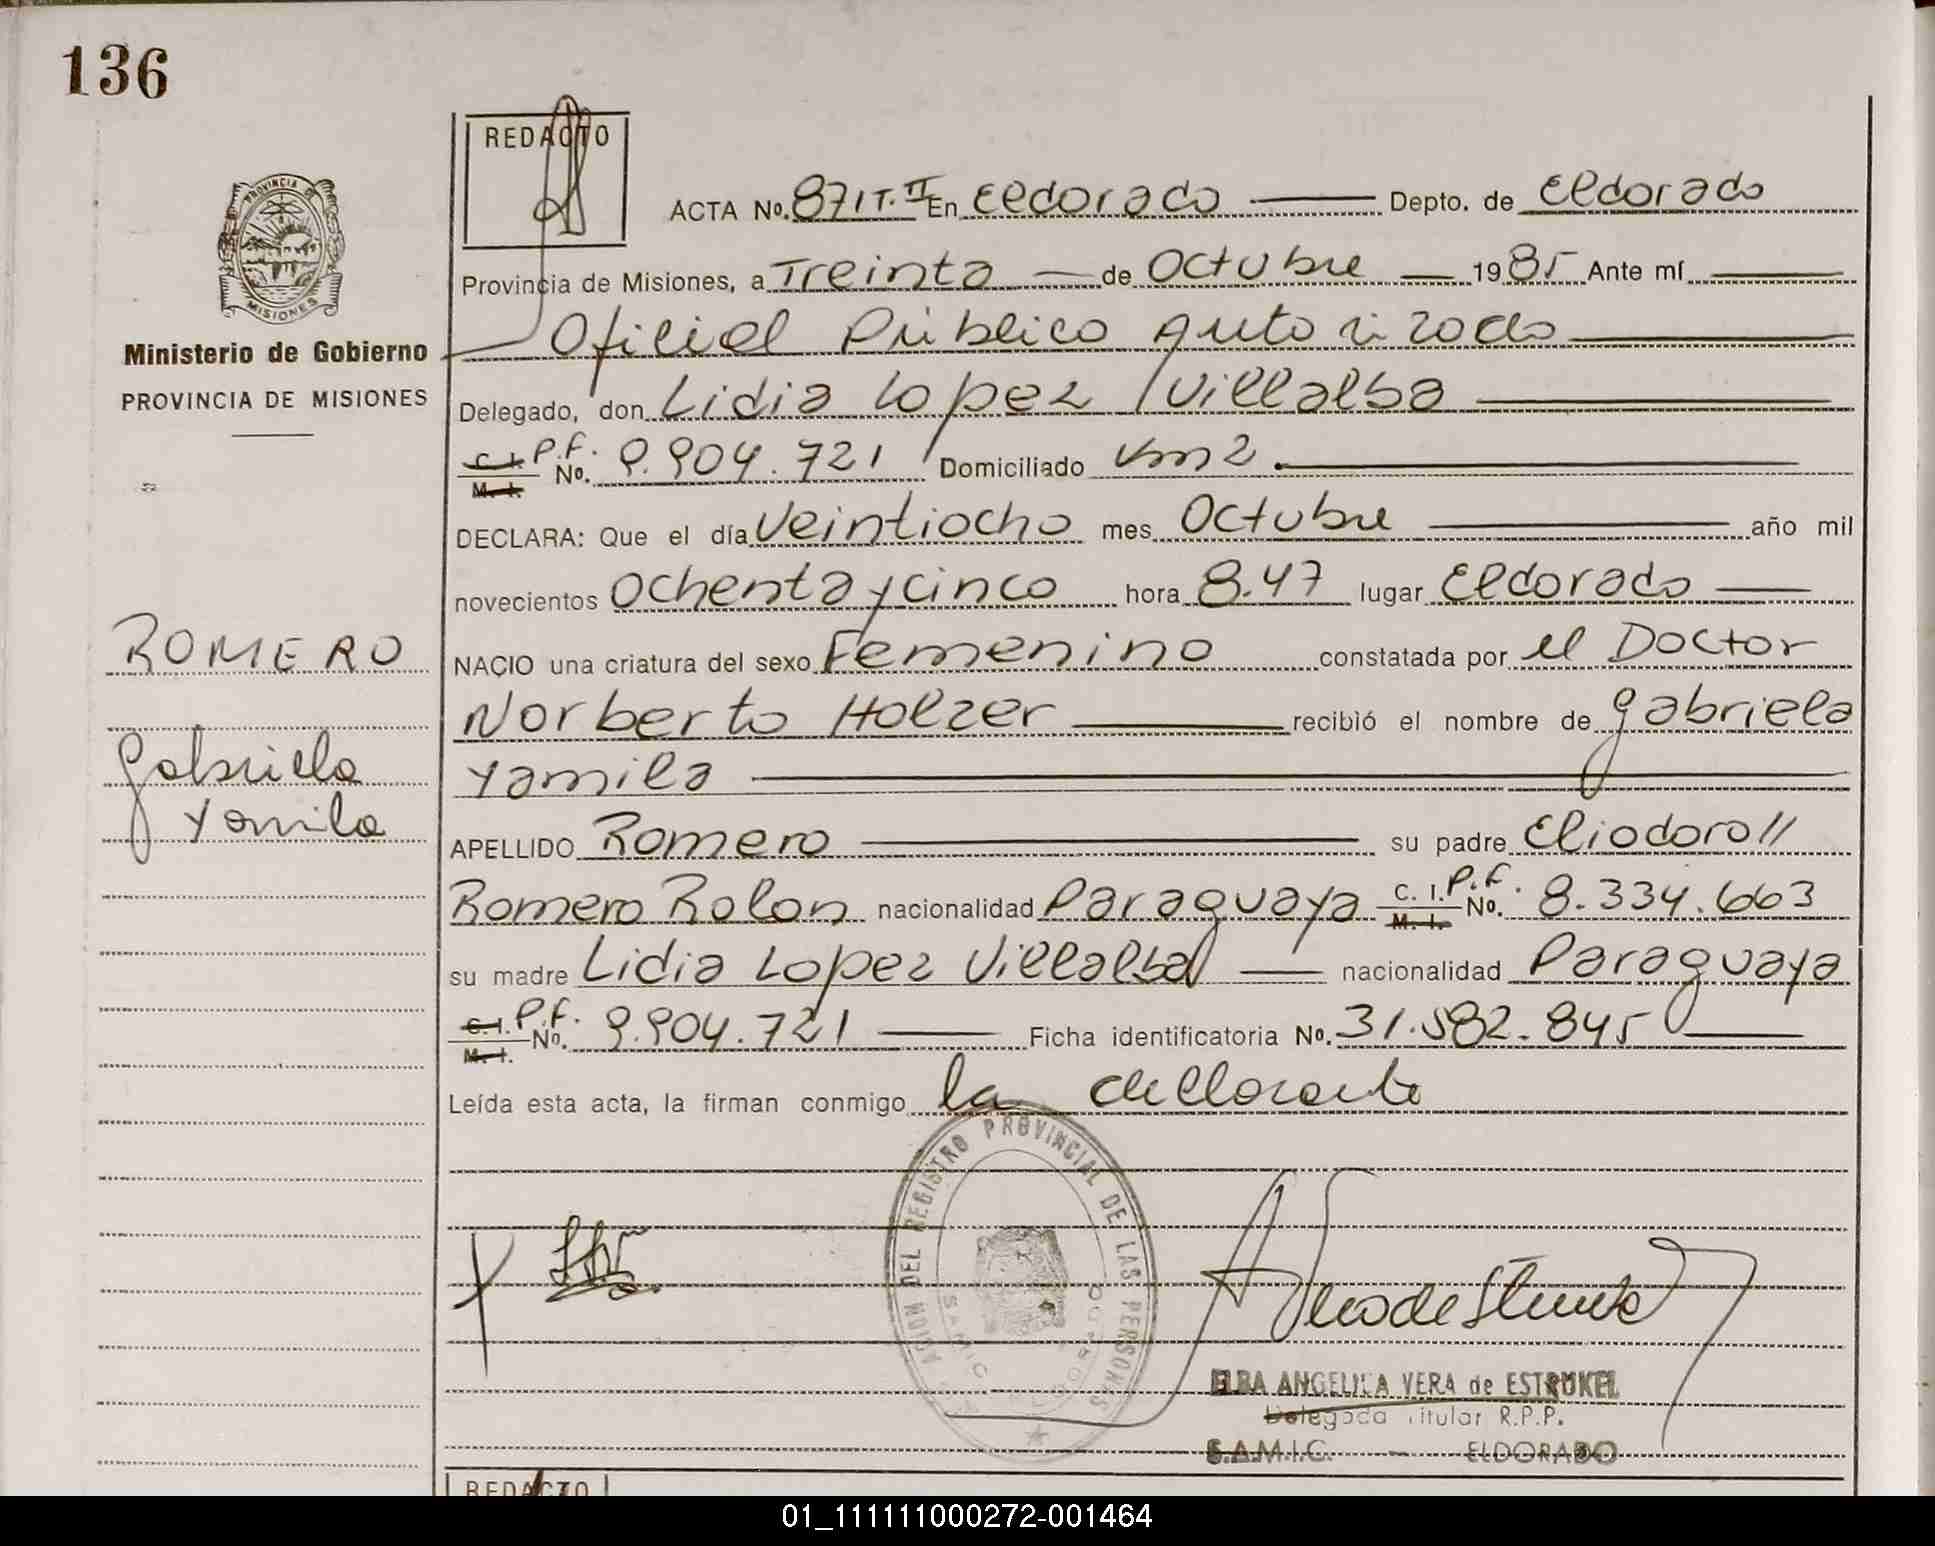 136
REDACTO
PROVINCIA DE
MISIONES
Ministerio de Gobierno
PROVINCIA DE MISIONES
ACTA No. 871 T. II En Eldorado Depto. de Eldorado
Provincia de Misiones, a Treinta de Octubre 1985 Ante mí
Oficial Público Autorizado
Delegado, don Lidia Lopez Villalba
C. I. M. I. P.F. No. 9.904.721 Domiciliado Km 2.
DECLARA: Que el día Veintiocho mes Octubre año mil
novecientos Ochenta y cinco hora 8.47 lugar Eldorado
ROMERO
NACIO una criatura del sexo Femenino constatada por el Doctor
Norberto Holzer recibió el nombre de Gabriela
Gabriela
Yamila
Yamila
APELLIDO Romero su padre Eliodoro //
Romero Rolon nacionalidad Paraguaya C. I. M. I. P.F. No. 8.334.663
su madre Lidia Lopez Villalba nacionalidad Paraguaya
C. I. M. I. P.F. No. 9.904.721 Ficha identificatoria No. 31.582.845
Leída esta acta, la firman conmigo la declarante
DEL REGISTRO PROVINCIAL DE LAS PERSONAS
SAMIC
ELDORADO
ELBA ANGELICA VERA de ESTRUKEL
Delegada Titular R.P.P.
S.A.M.I.C. - ELDORADO
REDACTO
01_111111000272-001464